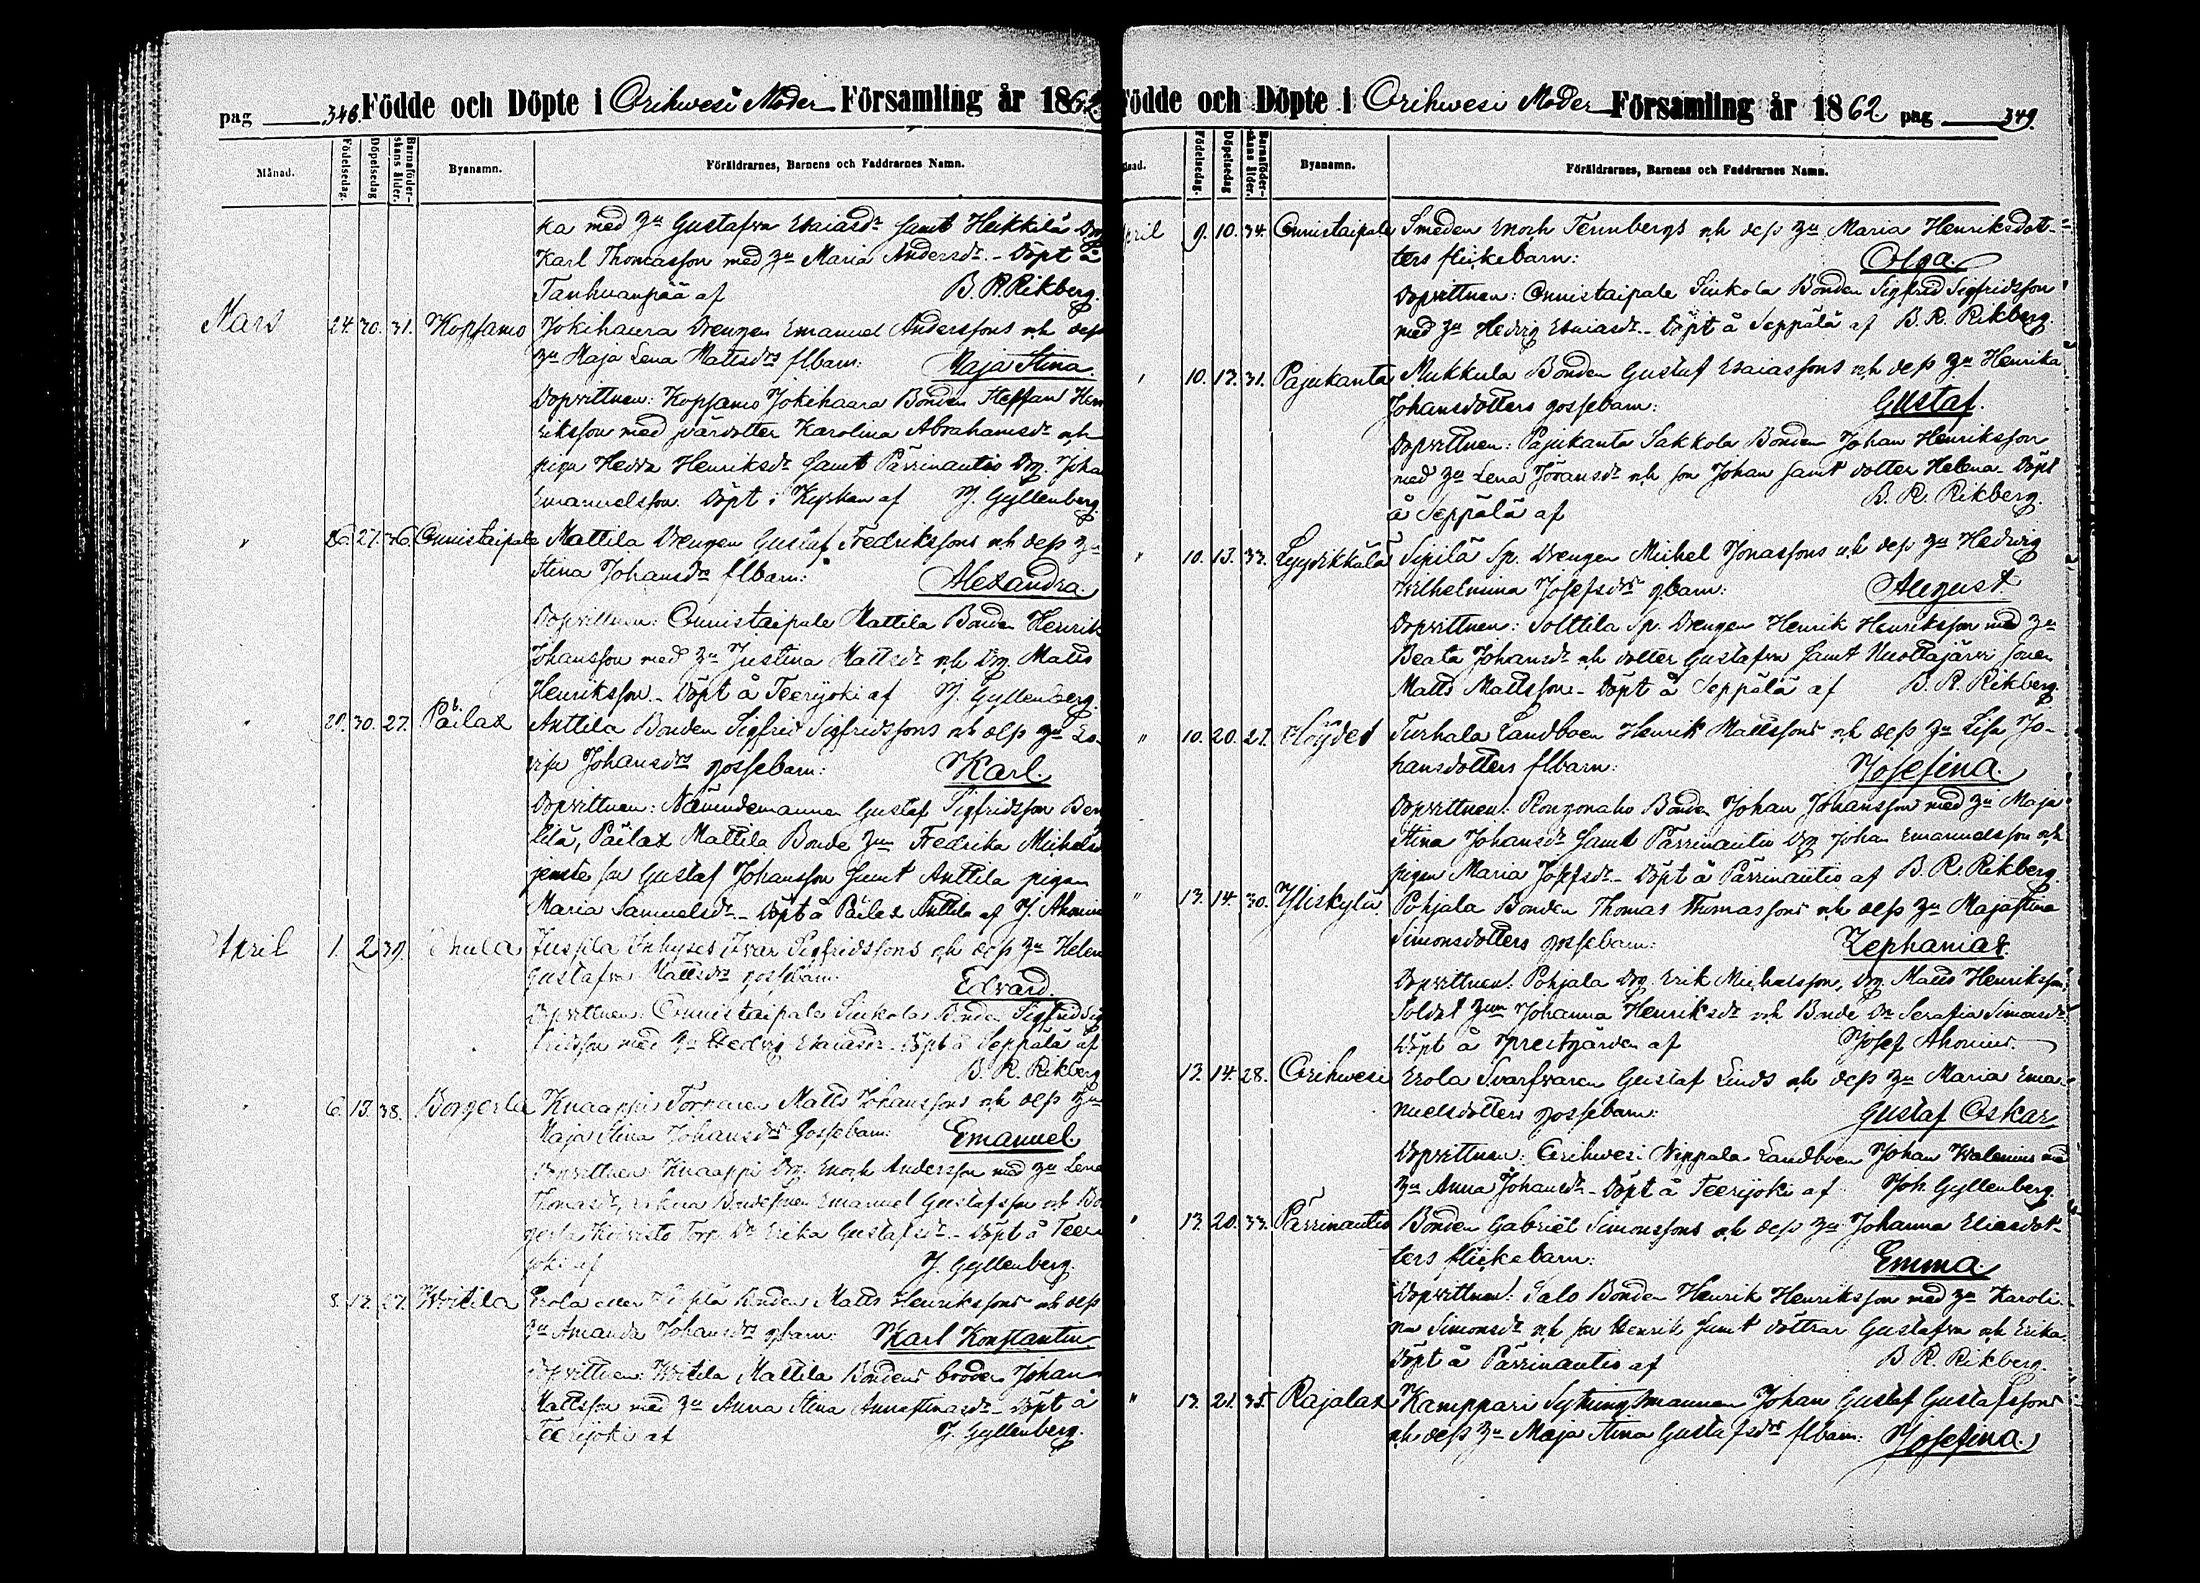 pag 348. Födde och Döpte i Orihwesi Moder Församling år 1862.
Månad. Födelsedag. Döpelsedag Barnaföderskans ålder. Byanamn. Föräldrarnes, Barnens och Faddrarnes Namn.
ka med Hu Gustafva Esaiasdr samt Heikkilä Drg
Karl Thomasson med Hu Maria Andersdr. - Döpt å
Tanhuanpää af B. R. Rikberg.
Mars 24. 30. 31. Kopsamo Jokihaara Drengen Emanuel Anderssons och dess
Hu Maja Lena Mattsdrs flbarn: Maja Stina.
Dopvittnen: Kopsamo Jokihaara Bonden Steffan Hen
riksson med svärdotter Karolina Abrahamsdr och
pigan Hedda Henriksdr samt Pärrinautio Drg. Johan
Emanuelsson. Döpt i Kyrkan af J. Gyllenberg.
" 26. 27. 36. Onnistaipale Mattila Drengen Gustaf Fredrikssons och dess Hu
Stina Johansdrs flbarn: Alexandra.
Dopvittnen: Onnistaipale Mattila Bonden Henrik
Johansson med Hu Justina Mattsdr och Drg. Matts
Henriksson. - Döpt å Teerijoki af J. Gyllenberg.
" 29. 30. 27. Päilax Anttila Bonden Sigfrid Sigfridssons och dess Hu Lo-
visa Johansdrs gossebarn: Karl.
Dopvittnen: Nämndemannen Gustaf Sigfridsson
Päilax Mattila Bonde Hun Fredrika Michelsd
son Gustaf Johansson samt Anttila pigan
Maria Samuelsdr. - Döpt å Päilax Anttila af J. Ahonius
April 1. 2. 39. Jussila Inhyses Ivar Sigfridssons och dess Hu Helena
Gustafva Mattsdrs gossebarn: Edvard.
Dopvittnen: Onnistaipale Siukola Bonden Sigfrid Sig
fridsson med Hu Hedvig Esaiasdr. Döpt å Seppälä af
B. R. Rikberg
" 6. 13. 38. Borgerla Knaappi Torparen Matts Johanssons och dess Hu
Maja Stina Johansdrs Gossebarn: Emanuel.
Dopvittnen: Knaappi Drg. Enoch Andersson med Hu Lena
Thomasdr, Bondesonen Emanuel Gustafsson och Bor
gerla Koivisto Torp. Dr Erika Gustafsdr. - Döpt å Teeri
joki af J. Gyllenberg.
8. 13. 27. Woitila Erola eller Bonden Matts Henrikssons och dess
Hu Amanda Johansdrs gbarn: Karl Konstantin.
Dopvittnen: Woitila Mattila Bondens broder Johan
Mattsson med Hu Anna Stina Annastinasdr. - Döpt å
Teerijoki af J. Gyllenberg.
Födde och Döpte i Orihwesi Moder Församling år 1862. pag 349.
Födelsedag. Döpelsedag Barnaföderskans ålder. Byanamn. Föräldrarnes, Barnens och Faddrarnes Namn.
April 9. 10. 34. Onnistaipale Smeden Enoch Tennbergs och dess Hu Maria Henriksdot-
ters flickebarn: Olga.
Dopvittnen: Onnistaipale Siukola Bonden Sigfrid Sigfridsson
med Hu Hedvig Esaiasdr. - Döpt å Seppälä af B. R. Rikberg.
" 10. 13. 31. Pajukanta Mukkula Bonden Gustaf Esaiassons och dess Hu Henrika
Johansdotters gossebarn: Gustaf.
Dopvittnen: Pajukanta Sakkola Bonden Johan Henriksson
med Hu Lena Göransdr och son Johan samt dotter Helena. Döpt
å Seppälä af B. R. Rikberg.
" 10. 13. 33. Lyydikkälä Sipilä Sp. Drengen Michel Jonassons och dess Hu Hedvig
Wilhelmina Josefsdrs gbarn: August
Dopvittnen: Solttila Sp. Drengen Henrik Henriksson med Hu
Beata Johansdr och dotter Gustafva samt Nuottajärvi sonen
Matts Mattsson. - Döpt å Seppälä af B. R. Rikberg.
" 10. 20. 27. Höydes Turhala Landboen Henrik Mattssons och dess Hu Lisa Jo-
hansdotters flbarn: Josefina.
Dopvittnen: Rongonaho Bonden Johan Johansson med Hu Maja
Stina Johansdr samt Pärrinautio Drg Johan Emanuelsson och
pigan Maria Josefsdr. - Döpt å Pärrinautio af B. R. Rikberg.
" 13. 14. 30. Yliskylä Pohjala Bonden Thomas Thomassons och dess Hu Majastina
Simonsdotters gossebarn: Zephanias.
Dopvittnen: Pohjala Drg. Erik Michelsson, Drg. Matts Henriksson,
Soldat Hun Johanna Henriksdr och Bonde Dr Serafia Simonsdr.
Döpt å Prestgården af Josef Ahonius.
13. 14. 28. Orihwesi Erola Svarfvaren Gustaf Linds och dess Hu Maria Ema-
nuelsdotters gossebarn: Gustaf Oskar
Dopvittnen: Orihwesi Nippala Landboen Johan Walenius med
Hu Anna Johansdr. - Döpt å Teerijoki af Joh. Gyllenberg.
" 13. 20. 33. Pärrinautio Bonden Gabriel Simonssons och dess Hu Johanna Eliasdot-
ters flickebarn: Emma
Dopvittnen: Salo Bonden Henrik Henriksson med Hu Karoli-
na Simonsdr och son Henrik samt döttrar Gustafva och Erika.
Döpt å Pärrinautio af B. R. Rikberg.
" 13. 21. 35. Rajalax Kamppari Sytningsmannen Johan Gustaf Gustafssons
och dess Hu Maja Stina Gustafsdrs flbarn: Josefina.